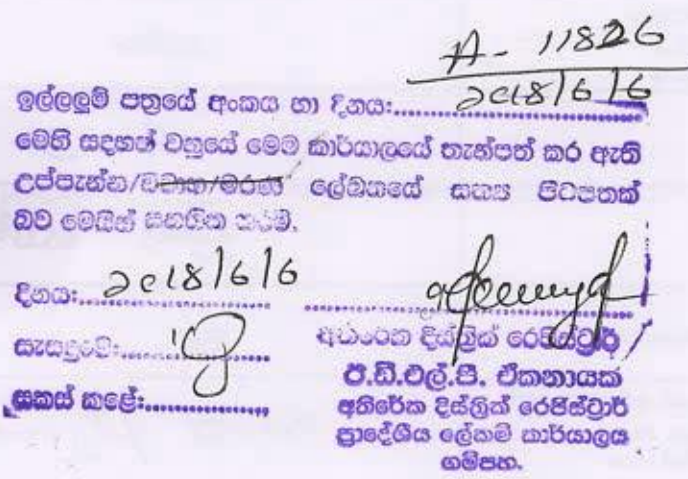 A - 11826
ඉල්ලුම් පත්‍රයේ අංකය හා දිනය:..... 2018/6/6
මෙහි සදහන් වනුයේ මෙම කාර්යාලයේ තැන්පත් කර ඇති
උප්පැන්න/විවාහ/මරණ ලේඛනයේ සත්‍ය පිටපතක්
බව මෙයින් සහතික කරමි.
දිනය:..... 2018/6/6
සැසඳුවේ:.....
අතිරේක දිස්ත්‍රික් රෙජිස්ට්‍රාර්
සකස් කළේ:.....
ඊ.ඩී.එල්.පී. ඒකනායක
අතිරේක දිස්ත්‍රික් රෙජිස්ට්‍රාර්
ප්‍රාදේශීය ලේකම් කාර්යාලය
ගම්පහ.